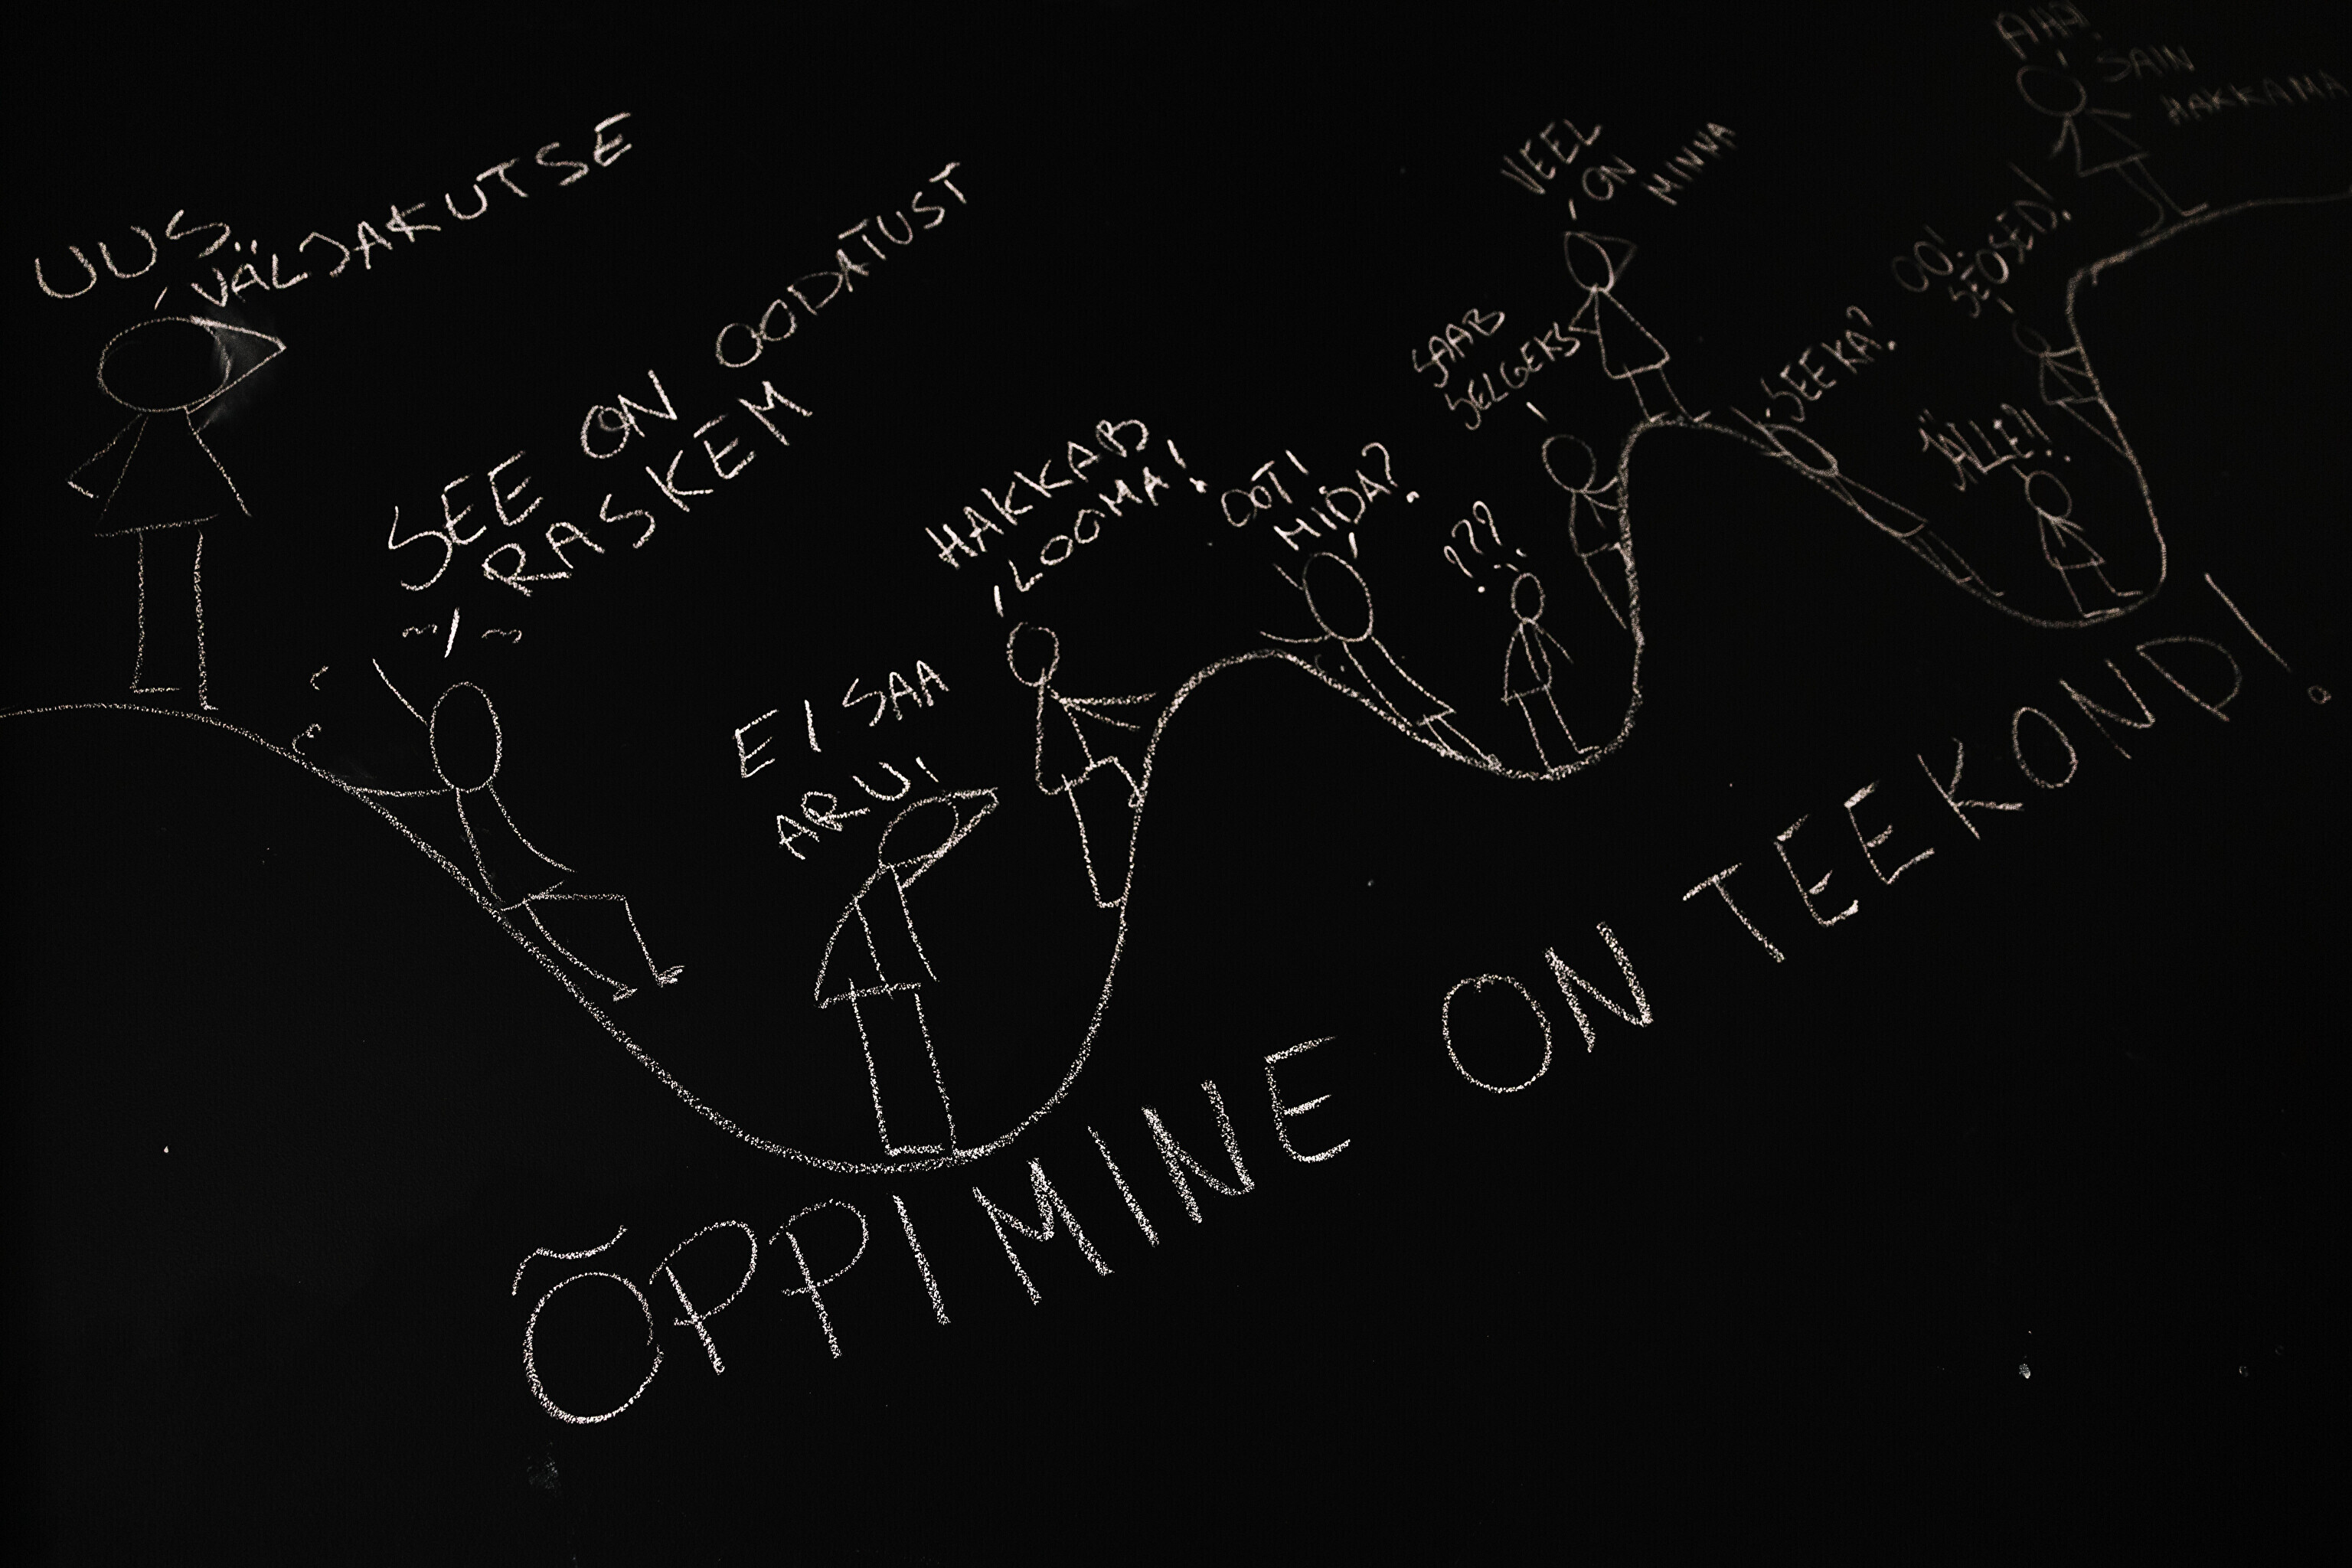 UUS
VÄLJAKUTSE
SEE ON OODATUST
RASKEM
EI SAA
ARU
HAKKAB
LOOMA!
OOT!
MIDA?
???
SAAB
SELGEKS
VEEL
ON
MINNA
SEE KA?
JÄLLE?!
OO!
SEOSED!
AHA!
SAIN
HAKKAMA
ÕPPIMINE ON TEEKOND!